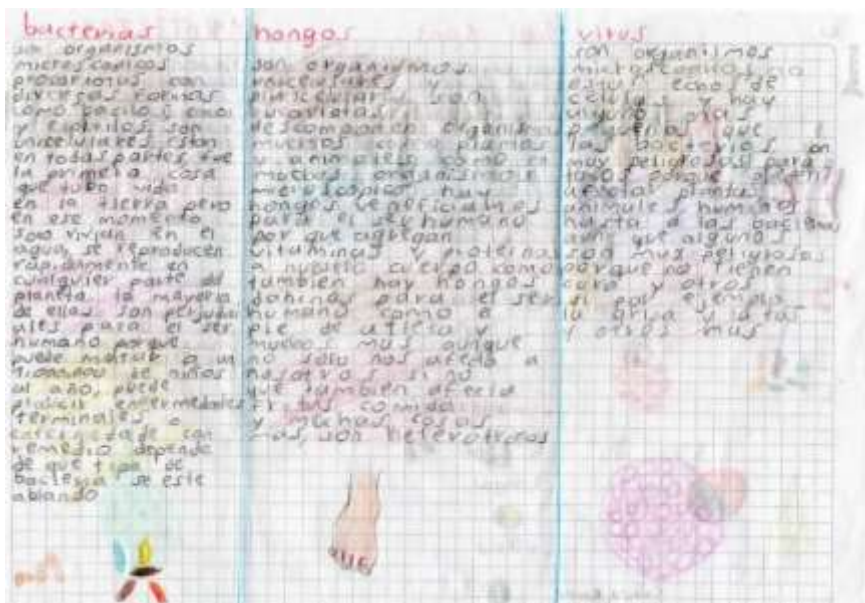 bacterias
son organismos
microscopicos
procariotas con
diversas formas
como bacilo, coco
y espirilos, son
unicelulares estan
en todas partes, fue
la primera cosa
que tubo vida
en la tierra pero
en ese momento
solo vivian en el
agua, se reproducen
rapidamente en
cualquier parte del
planeta, la mayoria
de ellas son perjudi
ciales para el ser
humano porque
puede matar a un
de niños
al año, puede
producir enfermedades
terminales o
con
remedio depende
de que tipo de
bacteria se este
ablando
hongos
son organismos
unicelulares y
pluricelulares son
eucariotas
descomponen organismos
muertos como plantas
u animales como en
muchos organismos
microscopicos hay
hongos beneficiosos
para el ser humano
por que agregan
vitaminas y proteinas
a nuestro cuerpo como
tambien hay hongos
dañinos para el ser
humano como el
pie de atleta y
muchos mas aunque
no solo nos afecta a
nosotros si no
que tambien afecta
tu comida
y muchas cosas
mas, son heterotrofos
virus
son organismos
microscopicos no
estan echos de
celulas y hay
algunos mas
pequeños que
las bacterias son
muy peligrosas para
todos porque pueden
afectar plantas
animales humanos
hasta a las bacterias
aun que algunos
son muy peligrosos
porque no tienen
cura y otros
si por ejemplo
la gripa y
y otros mas